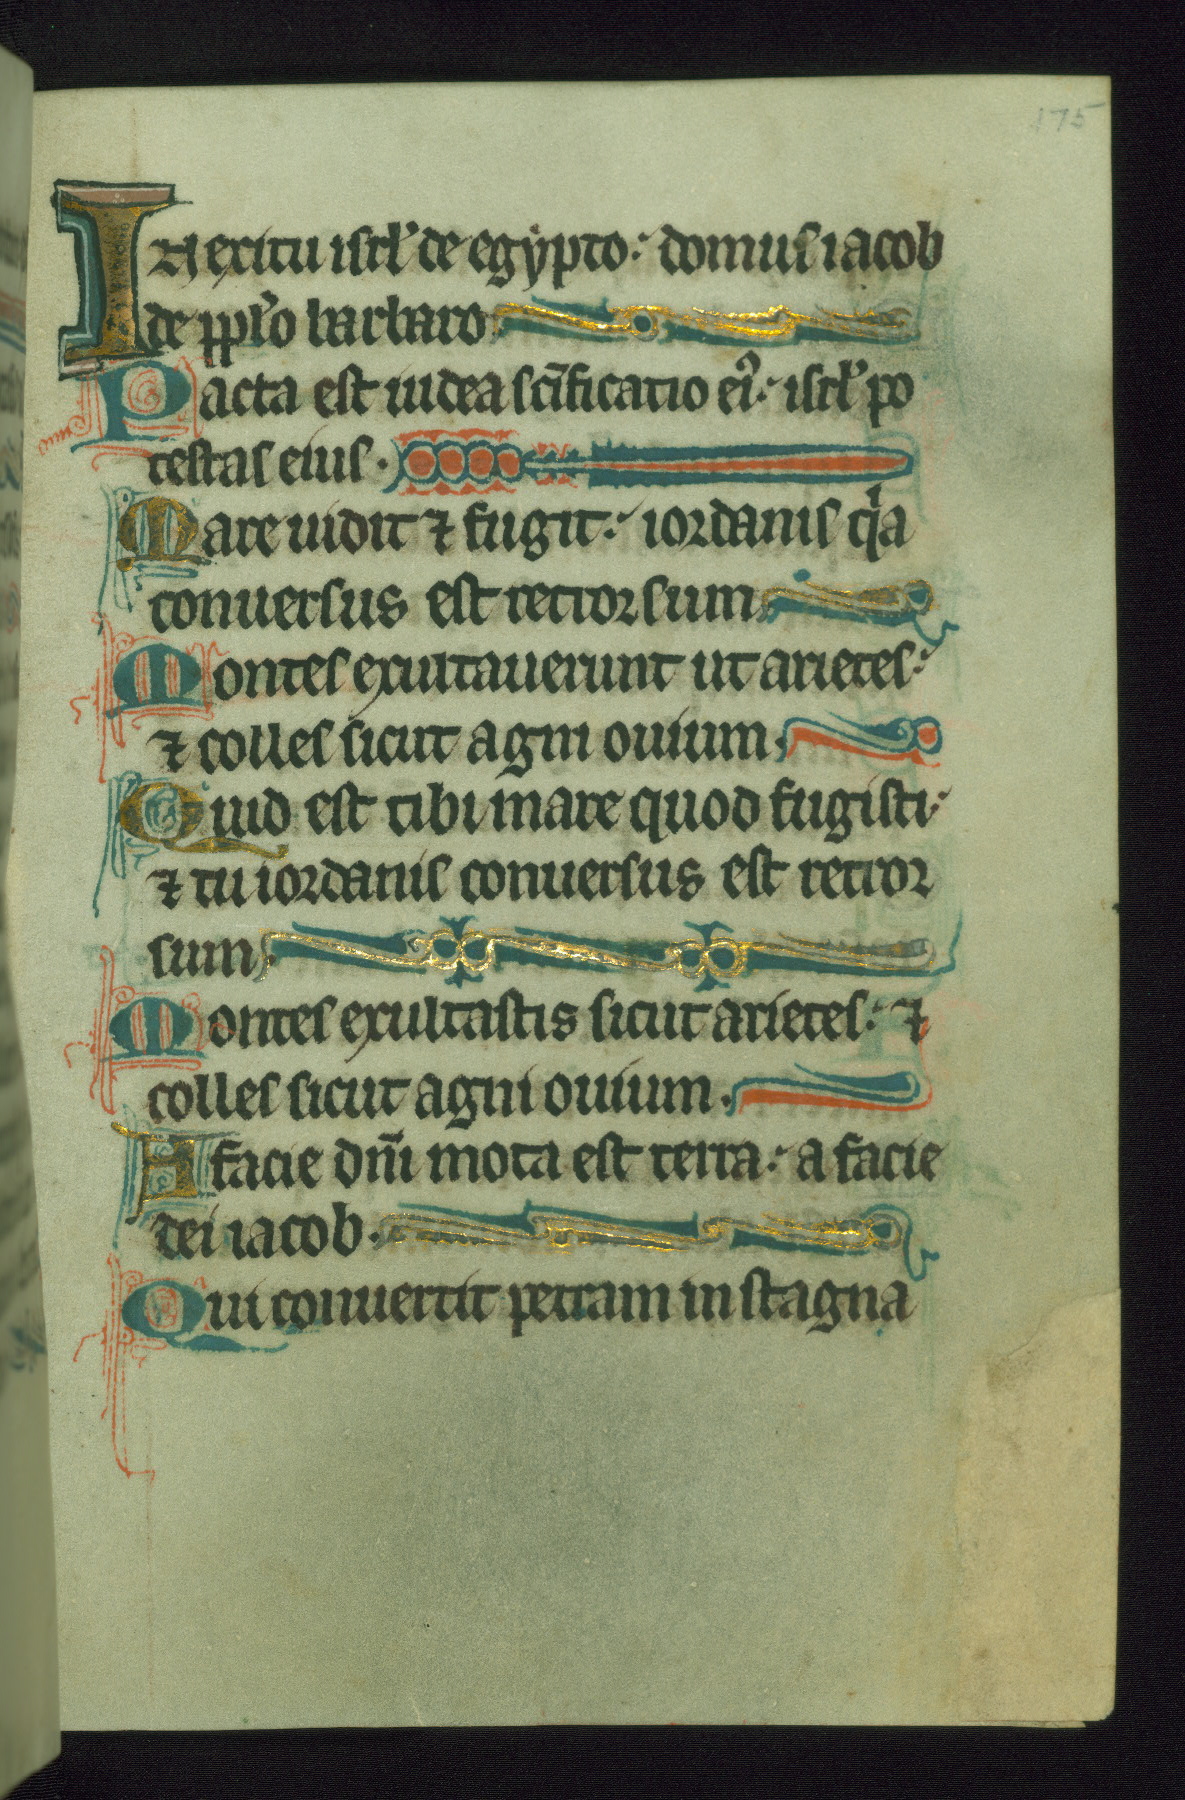 175
IN exitu isrl' de egypto: domus iacob
de ppl'o barbaro.
Facta est iudea scificatio ei': isrl' po
testas eius.
Mare uidit ⁊ fugit: iordanis qia
conuersus est retrorsum.
Montes exultauerunt ut arietes:
⁊ colles sicut agni ouium.
Quid est tibi mare quod fugisti:
⁊ tu iordanis conuersus est retror
sum.
Montes exultastis sicut arietes: ⁊
colles sicut agni ouium.
A facie dni mota est terra: a facie
dei iacob.
Qui conuertit petram in stagna